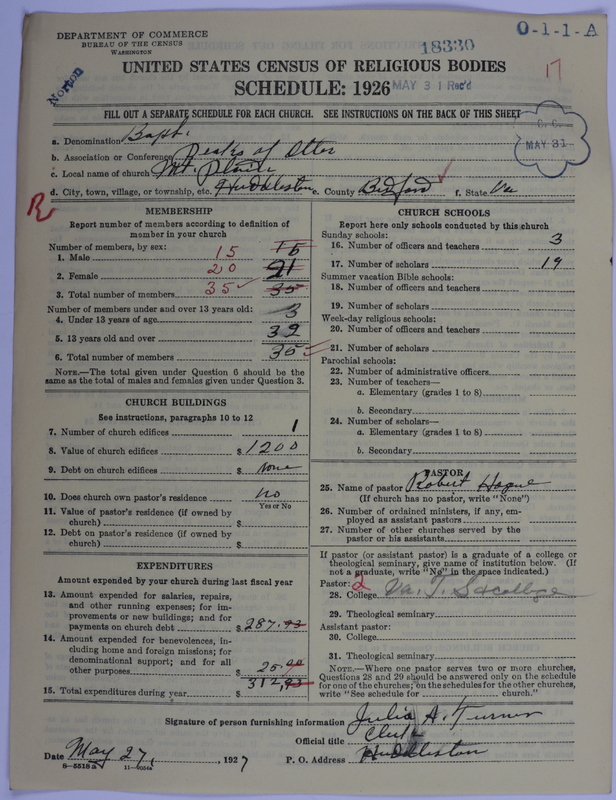 DEPARTMENT OF COMMERCE
BUREAU OF THE CENSUS
WASHINGTON
Norton
18330
0-1-1-A
UNITED STATES CENSUS OF RELIGIOUS BODIES
SCHEDULE: 1926
MAY 31 Rec'd
17
FILL OUT A SEPARATE SCHEDULE FOR EACH CHURCH. SEE INSTRUCTIONS ON THE BACK OF THIS SHEET
C. C.
MAY 31
a. Denomination Bapt.
b. Association or Conference Peaks of Otter
c. Local name of church Mt.
d. City, town, village, or township, etc. Huddleston e. County Bedford f. State Va
R
MEMBERSHIP
Report number of members according to definition of member in your church
Number of members, by sex:
1. Male 15
2. Female 20 21
3. Total number of members 35 35
Number of members under and over 13 years old:
4. Under 13 years of age 3
5. 13 years old and over 32
6. Total number of members 35
NOTE.—The total given under Question 6 should be the
same as the total of males and females given under Question 3.
CHURCH BUILDINGS
See instructions, paragraphs 10 to 12
7. Number of church edifices 1
8. Value of church edifices $ 1200
9. Debt on church edifices $ None
10. Does church own pastor's residence No
Yes or No
11. Value of pastor's residence (if owned by
church) $
12. Debt on pastor's residence (if owned by
church) $
EXPENDITURES
Amount expended by your church during last fiscal year
13. Amount expended for salaries, repairs,
and other running expenses; for im-
provements or new buildings; and for
payments on church debt $ 287.93
14. Amount expended for benevolences, in-
cluding home and foreign missions; for
denominational support; and for all
other purposes $ 25.00
15. Total expenditures during year $ 312.93
CHURCH SCHOOLS
Report here only schools conducted by this church
Sunday schools:
16. Number of officers and teachers 3
17. Number of scholars 19
Summer vacation Bible schools:
18. Number of officers and teachers
19. Number of scholars
Week-day religious schools:
20. Number of officers and teachers
21. Number of scholars
Parochial schools:
22. Number of administrative officers
23. Number of teachers—
a. Elementary (grades 1 to 8)
b. Secondary
24. Number of scholars—
a. Elementary (grades 1 to 8)
b. Secondary
PASTOR
25. Name of pastor Robert Hogue
(If church has no pastor, write "None")
26. Number of ordained ministers, if any, em-
ployed as assistant pastors
27. Number of other churches served by the
pastor or his assistants
If pastor (or assistant pastor) is a graduate of a college or
theological seminary, give name of institution below. (If
not a graduate, write "No" in the space indicated.)
Pastor: 2
28. College Va. T.
29. Theological seminary
Assistant pastor:
30. College
31. Theological seminary
NOTE.—Where one pastor serves two or more churches,
Questions 28 and 29 should be answered only on the schedule
for one of the churches; on the schedules for the other churches,
write "See schedule for church."
Signature of person furnishing information Julia A. Turner
Official title Clerk
Date May 27, 1927
P. O. Address Huddleston
8-5518 a